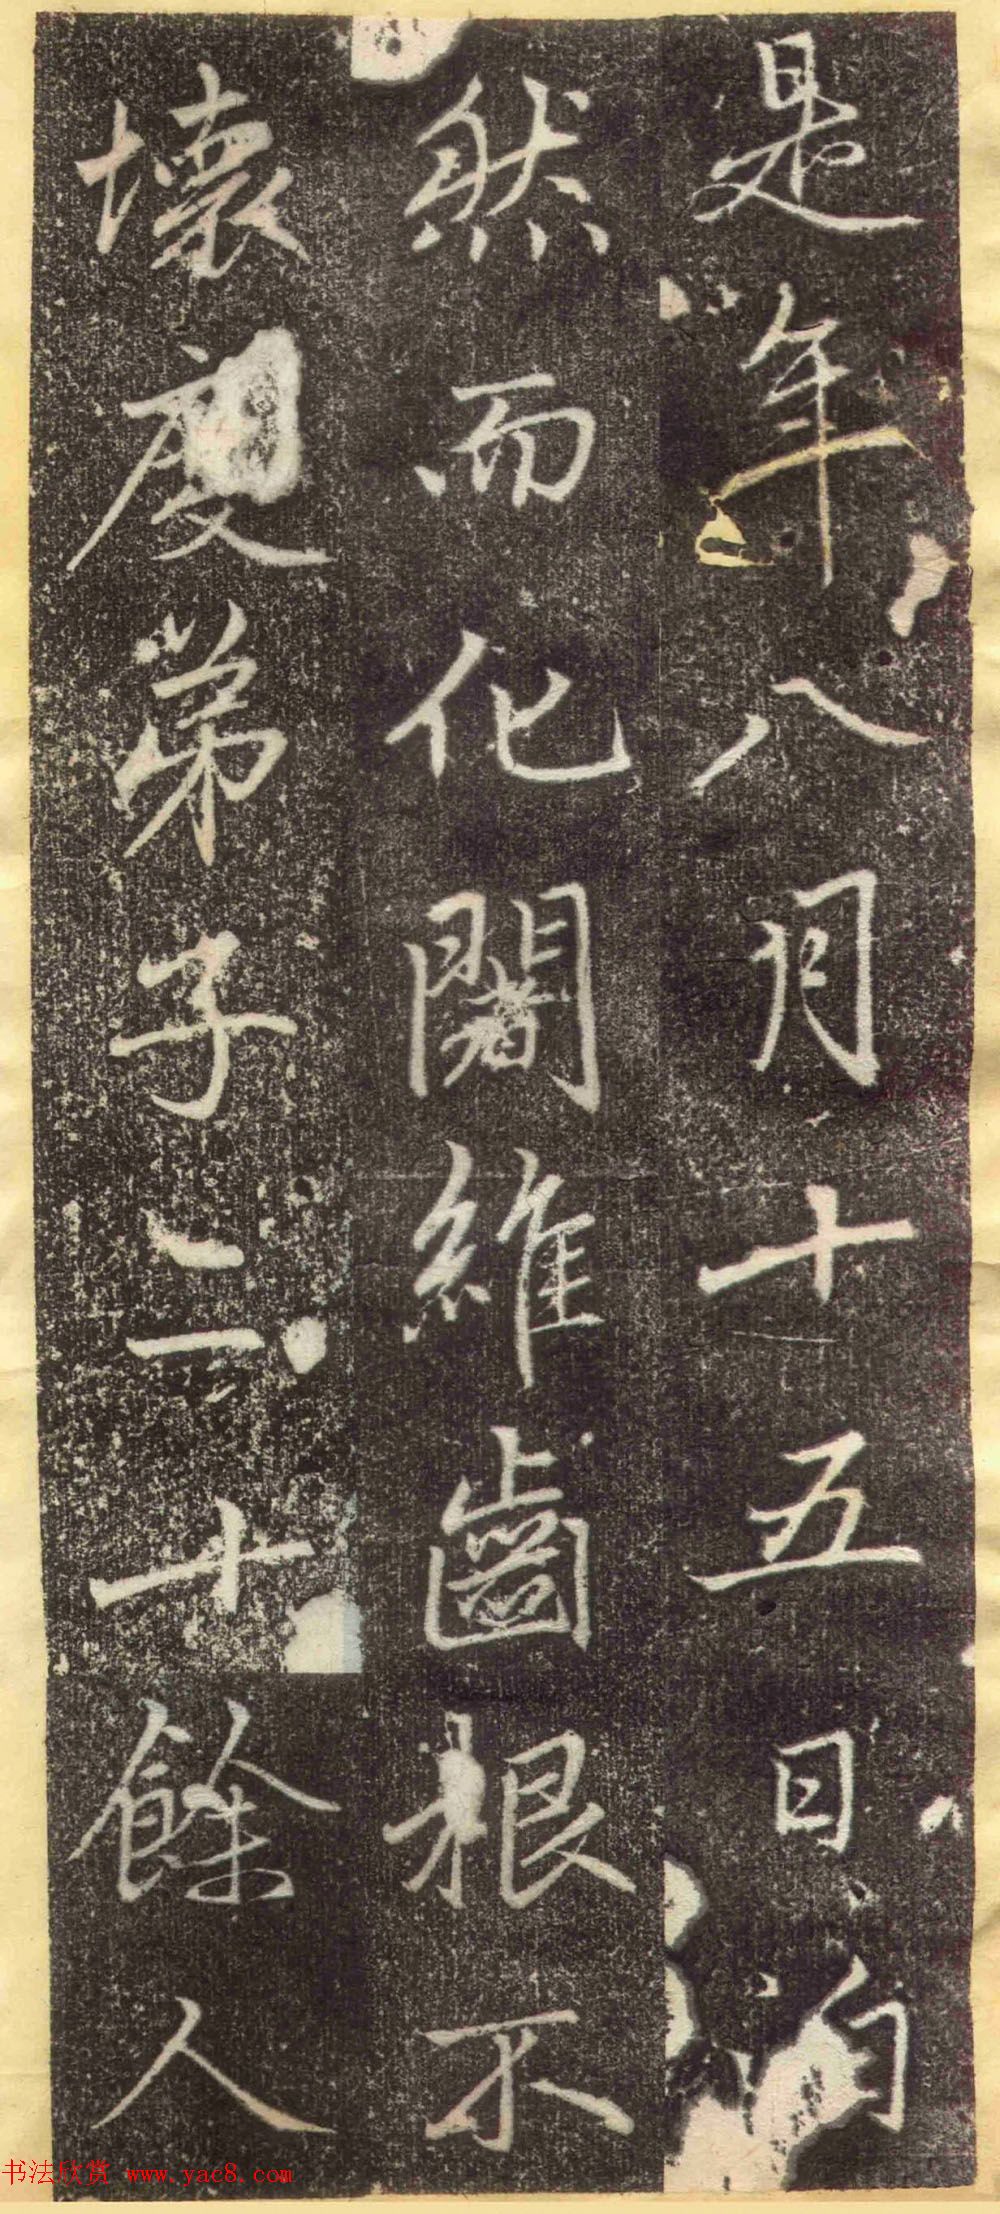 是年八月十五日泊
然而化闍維齒根不
壞度弟子二十餘人
书法欣赏 www.yac8.com